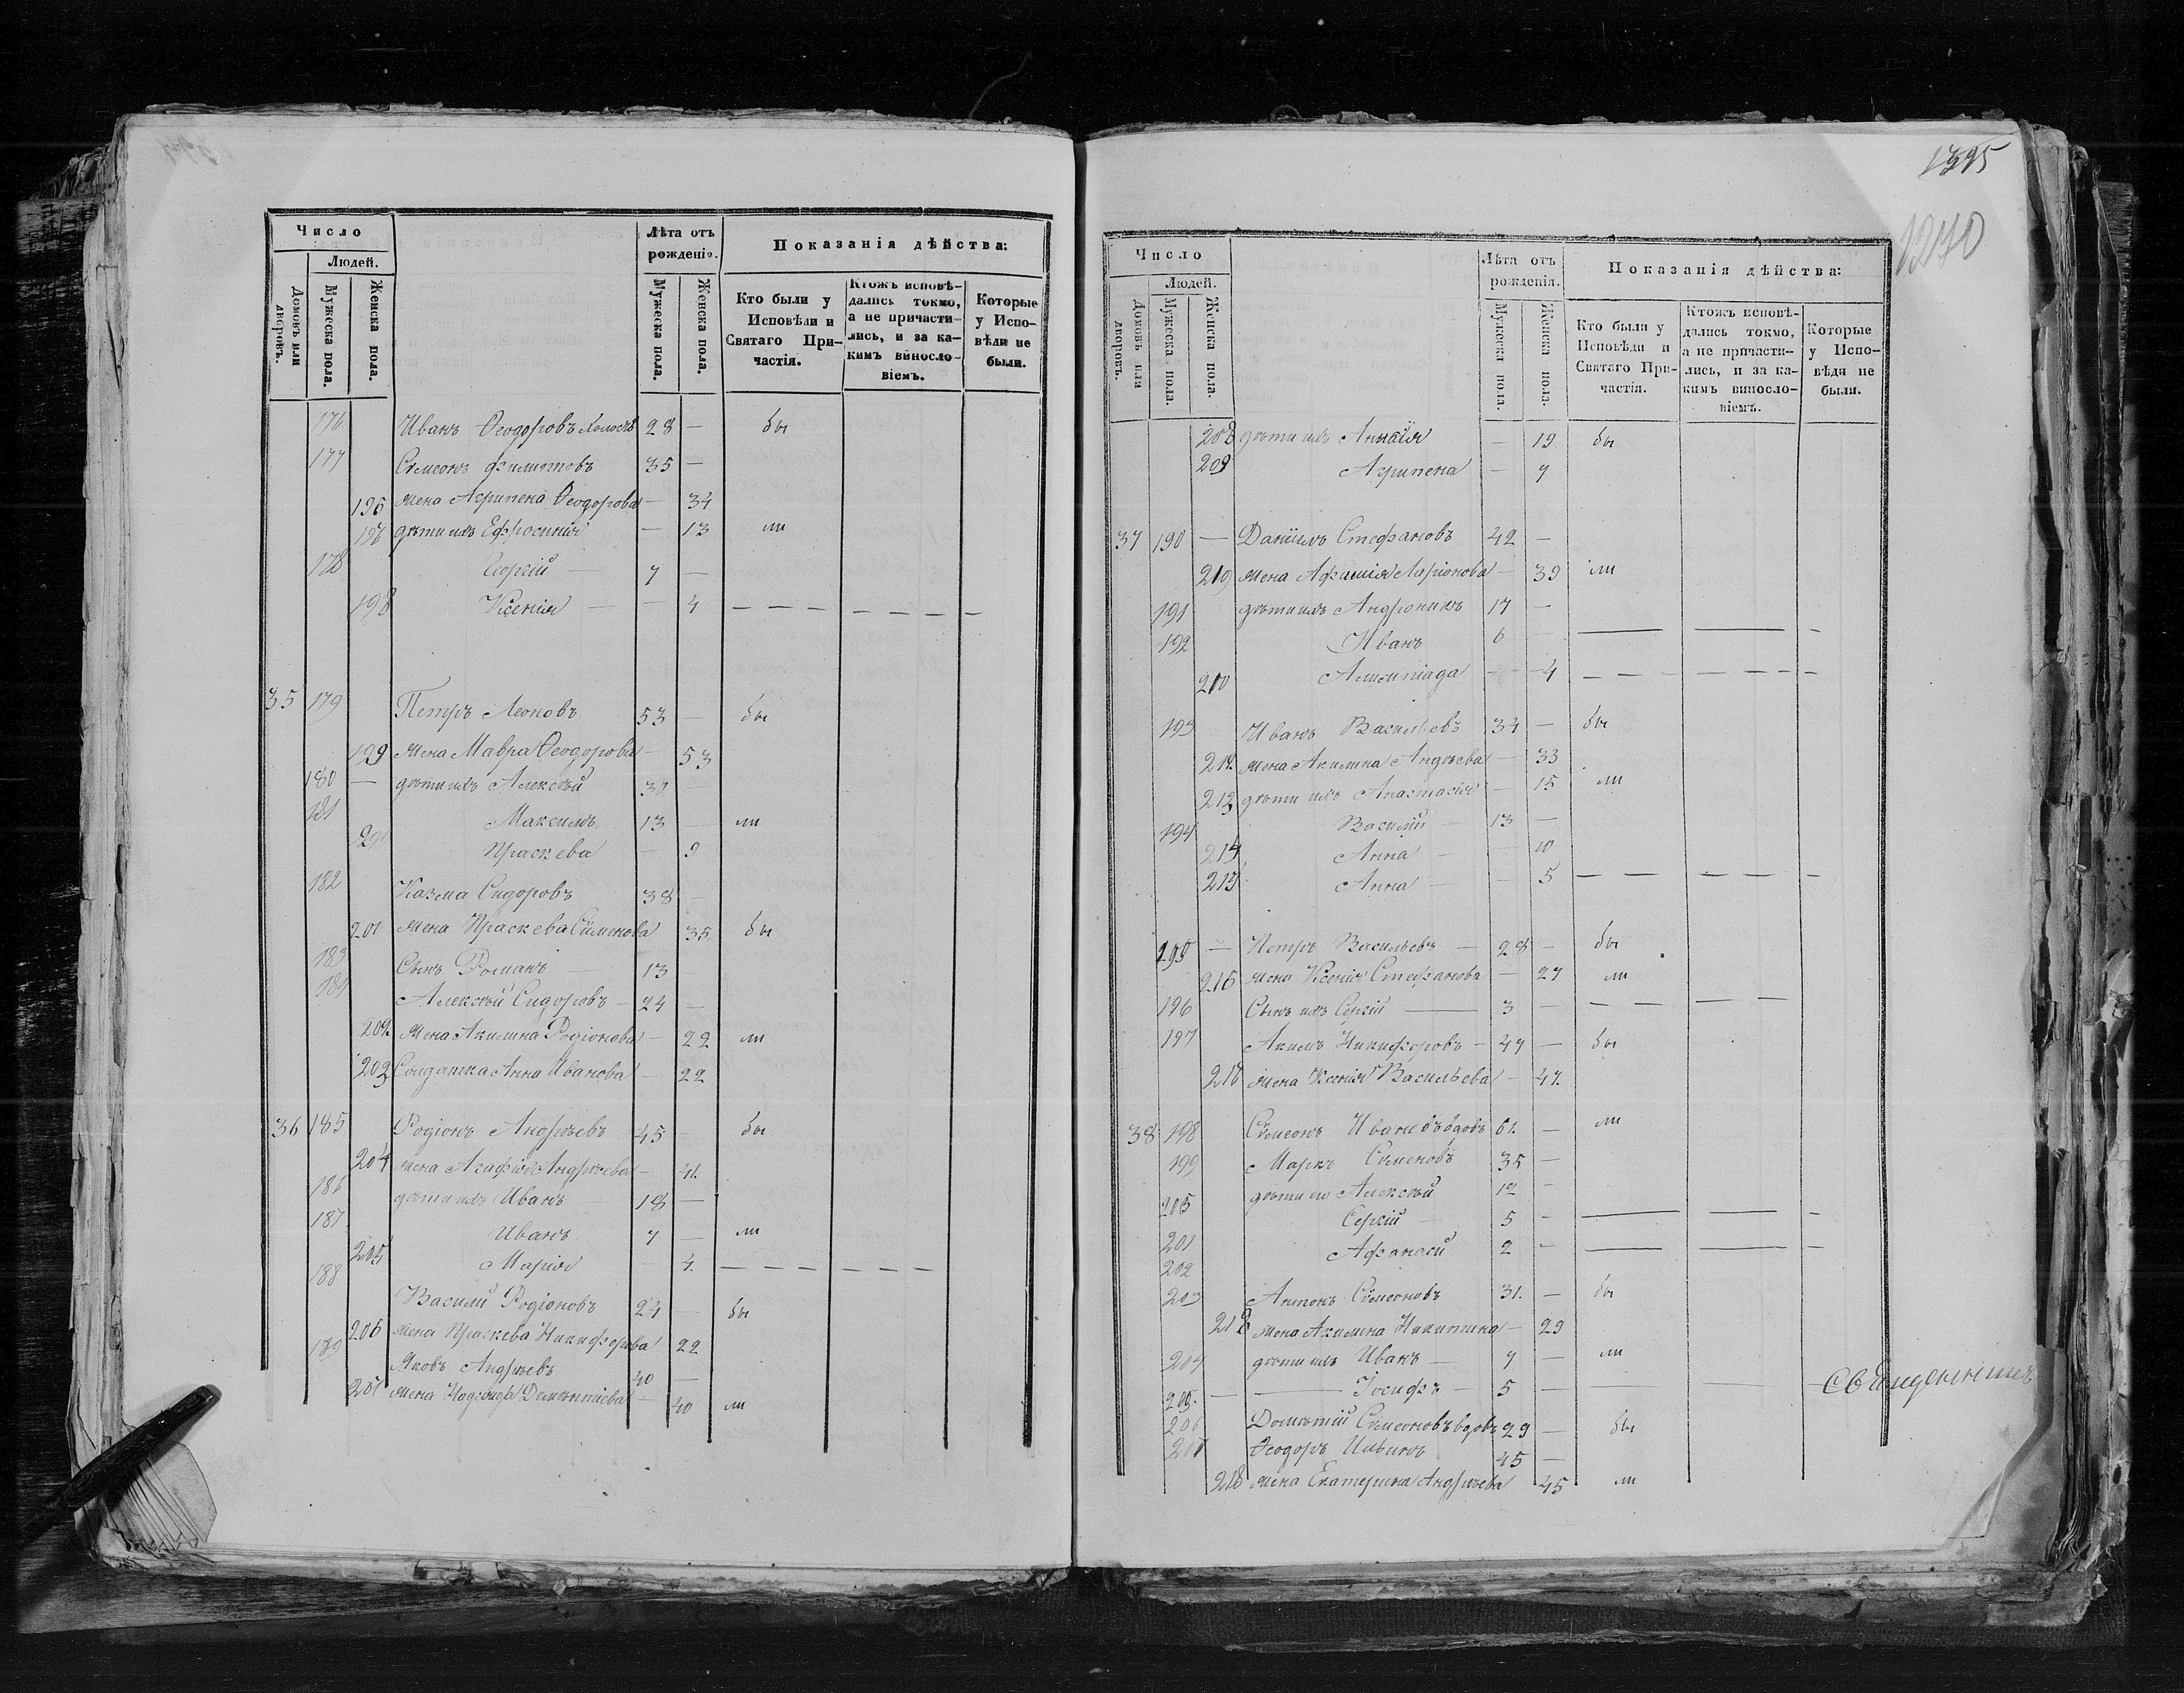 Число
Людей.
Домовъ или дворовъ.
Мужеска пола.
Женска пола.
Лѣта отъ рожденія.
Мужеска пола.
Женска пола.
Показанія дѣйства:
Кто были у Исповѣди и Святаго При-частія.
Ктожъ исповѣ-дались токмо, а не причасти-лись, и за ка-кимъ винословіемъ.
Которые у Испо-вѣди не были.
176 Иванъ Ѳеодоровъ Холостъ 28 — бы
177 Сѵмеонъ Филиповъ 35 —
196 Жена Агрипена Ѳеодорова — 34
197 дѣти ихъ Ефросинія — 13 ли
178 Георгій — 7 —
198 Ксенія — — 4 — — — — — — —
35 179 Петръ Леоновъ 53 — бы
199 Жена Мавра Ѳеодорова — 53
180 — дѣти ихъ Алексѣй 30 —
181 Максимъ 13 — ли
200 Праскева — 9
182 Казма Сидоровъ 38 —
201 Жена Праскева Сѵменова 35 бы
183 Сынъ Романъ — 13
184 Алексѣй Сидоровъ — 24 —
202 Жена Акилина Родіонова — 22 ли
203 Солдатка Анна Иванова — 22
36 185 Родіонъ Андрѣевъ 45 — бы
204 Жена Агафія Андрѣева — 41.
186 дѣти ихъ Иванъ 18 —
187 Иванъ 7 — ли
205 Марія — 4. — — — — — —
188 Василій Родіоновъ 24 — бы
206 Жена Праскева Никифорова 22
189 Яковъ Андрѣевъ 40 —
207 Жена Надежда Дементіева — 40 ли
1395
1270
Число
Людей.
Домовъ или дворовъ.
Мужеска пола.
Женска пола.
Лѣта отъ рожденія.
Мужеска пола.
Женска пола.
Показанія дѣйства:
Кто были у Исповѣди и Святаго При-частія.
Ктожъ исповѣ-дались токмо, а не причасти-лись, и за ка-кимъ винословіемъ.
Которые у Испо-вѣди не были.
208 дѣти ихъ — 19 бы
209 Агрипена — 7
37 190 — Даніилъ Стефановъ 42 —
219 Жена Афимія Ларіонова — 39 ли
191 дѣти ихъ Андроникъ 17 —
192 Иванъ 6 — — — —
210 Алимпіада — 4 — — — — — —
193 Иванъ Васильевъ 34 — бы
212. Жена Акилина Андреева — 33
213 дѣти ихъ Анастасія — 15 ли
194 Василій — 13 —
214 Анна — — 10
215 Анна — — 5 — — — — — —
195 — Петръ Васильевъ — 28 — бы
216 Жена Ксенія Стефанова — 27 ли
196 Сынъ ихъ Сергій — 3 — — — — —
197 Акимъ Никифоровъ — 47 — бы
217 Жена Ксенія Васильева — 47.
38 198 Сѵмеонъ Ивановъ вдовъ 61. — ли
199 Маркъ Сѵменовъ 35 —
205 дѣти его Алексѣй 12 —
201 Сергій — 5 — — — —
202 Афанасій 2 — — — —
203 Антонъ Сѵмеоновъ 31. — бы
218 Жена Акилина Никитина — 29
204 дѣти ихъ Иванъ — 7 — ли
205. — — Іосифъ — 5 — — — —
Священникъ
206 Дометій Сѵмеоновъ вдовъ 29 — бы
207 Ѳеодоръ Ильинъ 45 —
218 Жена Екатерина Андрѣева 45 ли